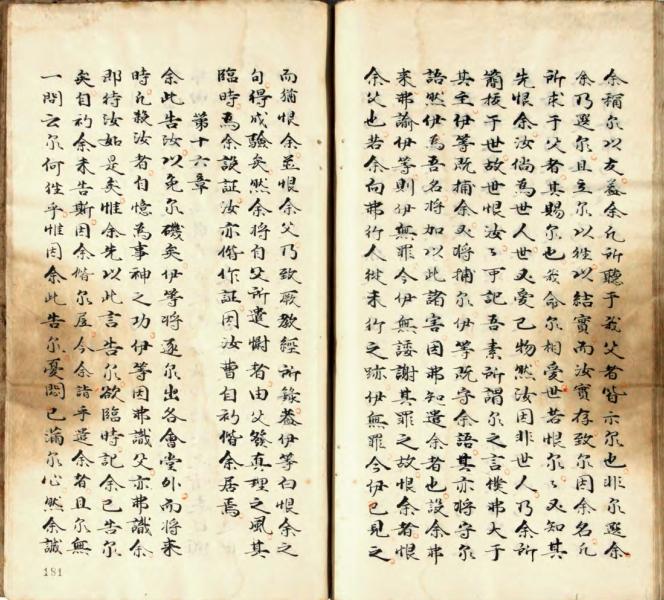 余稱尔以友蓋余凡所聽于我父者皆示尔也非尔選余
余乃選尔且立尔以徃以結實而汝實存致尔因余名凡
所求于父者其賜尔也我命尔相愛世若恨尔尔又知其
先恨余汝倘為世人世又愛己物然汝因非世人乃余所
簡拔于世故世恨汝汝可記吾素所謂尔之言僕弗大于
其主伊等既捕余又將捕尔伊等既守余語其亦將守尔
語然伊為吾名將加以此諸害因弗知遣余者也設余弗
来弗諭伊等則伊無罪今伊無諉謝其罪之故恨余者恨
余父也若余向弗行人從未行之跡伊無罪今伊已見之
而猶恨余並恨余父乃致厥教經所錄蓋伊等白恨余之
句得成驗矣然余將自父所遣慰者由父發真理之風其
臨時為余設証汝亦俻作証因汝曹自初偕余居焉
第十六章
余此告汝以免尔礙矣伊等將逐尔出各會堂外而將来
時凡殺汝者自憶為事神之功伊等因弗識父亦弗識余
即待汝如是矣惟余先以此言告尔欲臨時記余已告尔
矣自初余未告斯因余偕尔居今余詣乎遣余者且尔無
一問云尔何徃乎惟因余此告尔憂悶已滿尔心然余誠
181